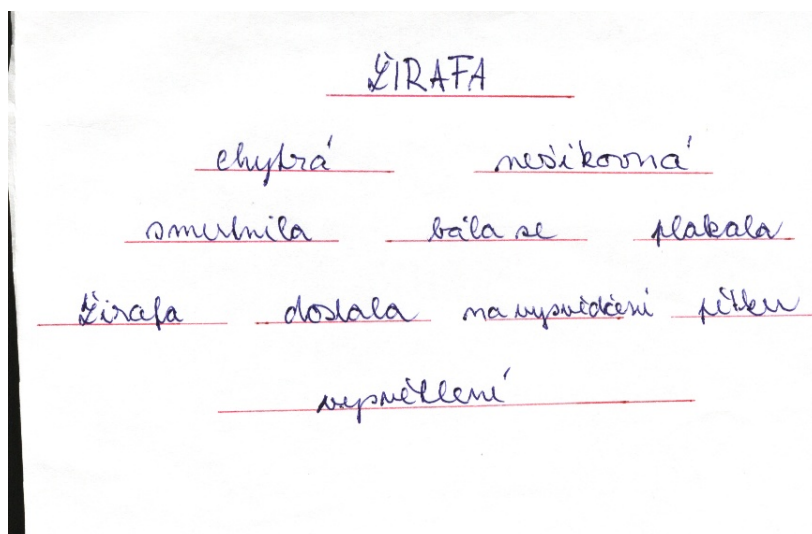 ŽIRAFA
chytrá nešikovná
smutnila bála se plakala
Žirafa dostala na vysvědčení pětku
vysvětlení